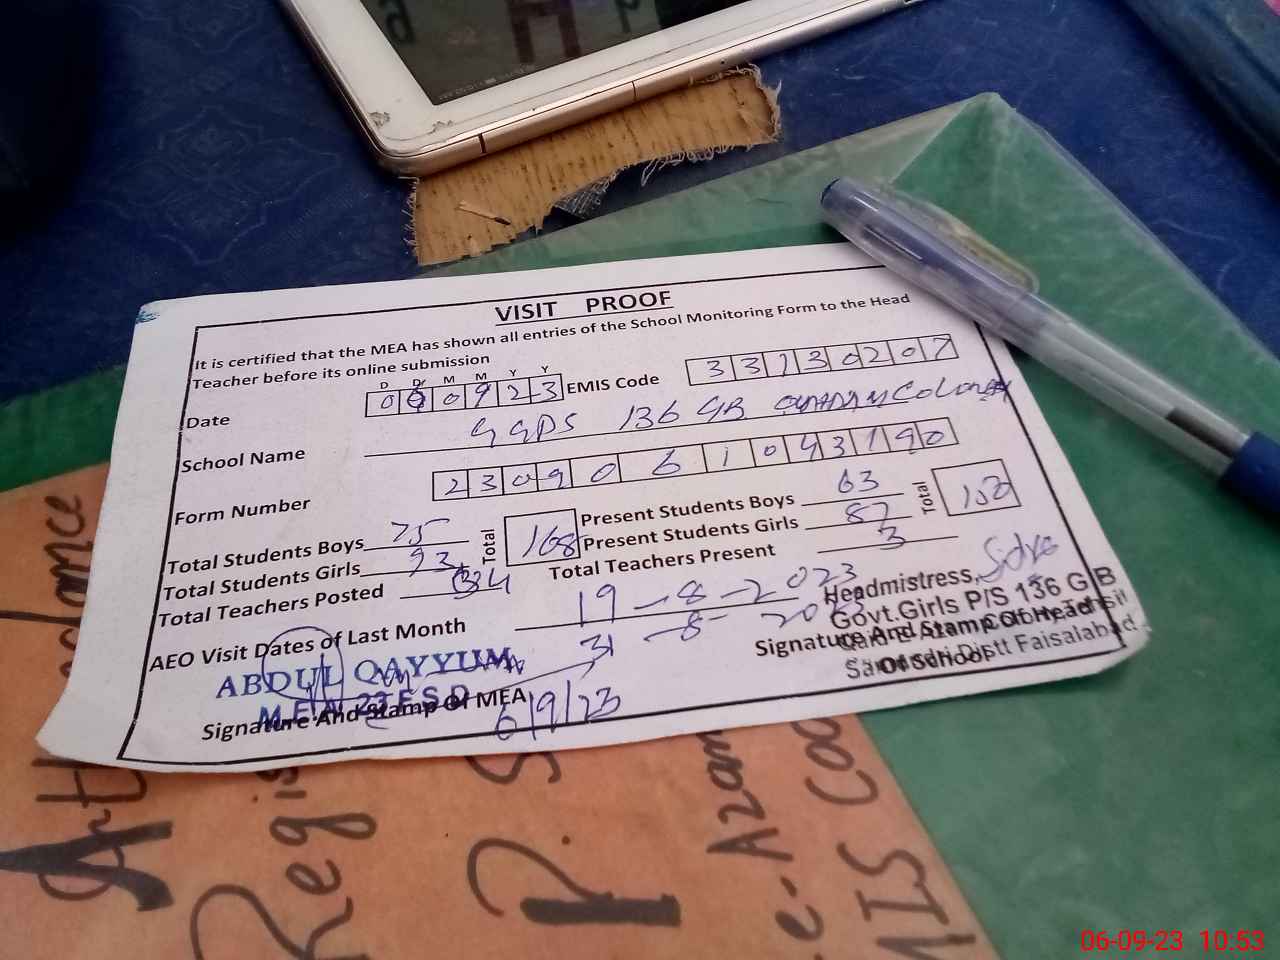 VISIT PROOF
It is certified that the MEA has shown all entries of the School Monitoring Form to the Head
Teacher before its online submission
D D M M Y Y
Date 0 0 9 2 3 EMIS Code 3 3 1 3 0 2 0 7
School Name GGPS 136 GB
Form Number 2 3 0 9 0 6 1 0 4 3 1 9 0
Total Students Boys 75 Total 168 Present Students Boys 63 Total 150
Total Students Girls 93 Present Students Girls 87
Total Teachers Posted 04 Total Teachers Present 3
AEO Visit Dates of Last Month 19-8-2023
31-8-2023
Headmistress,
Govt.Girls P/S 136 GB
Signature And Stamp Of Head
Of School
Distt Faisalabad
ABDUL QAYYUM
MEA 27 FSD
Signature And Stamp Of MEA
6/9/23
Attendance
Regis
P.S
e-Azam
MIS Co
06-09-23 10:53